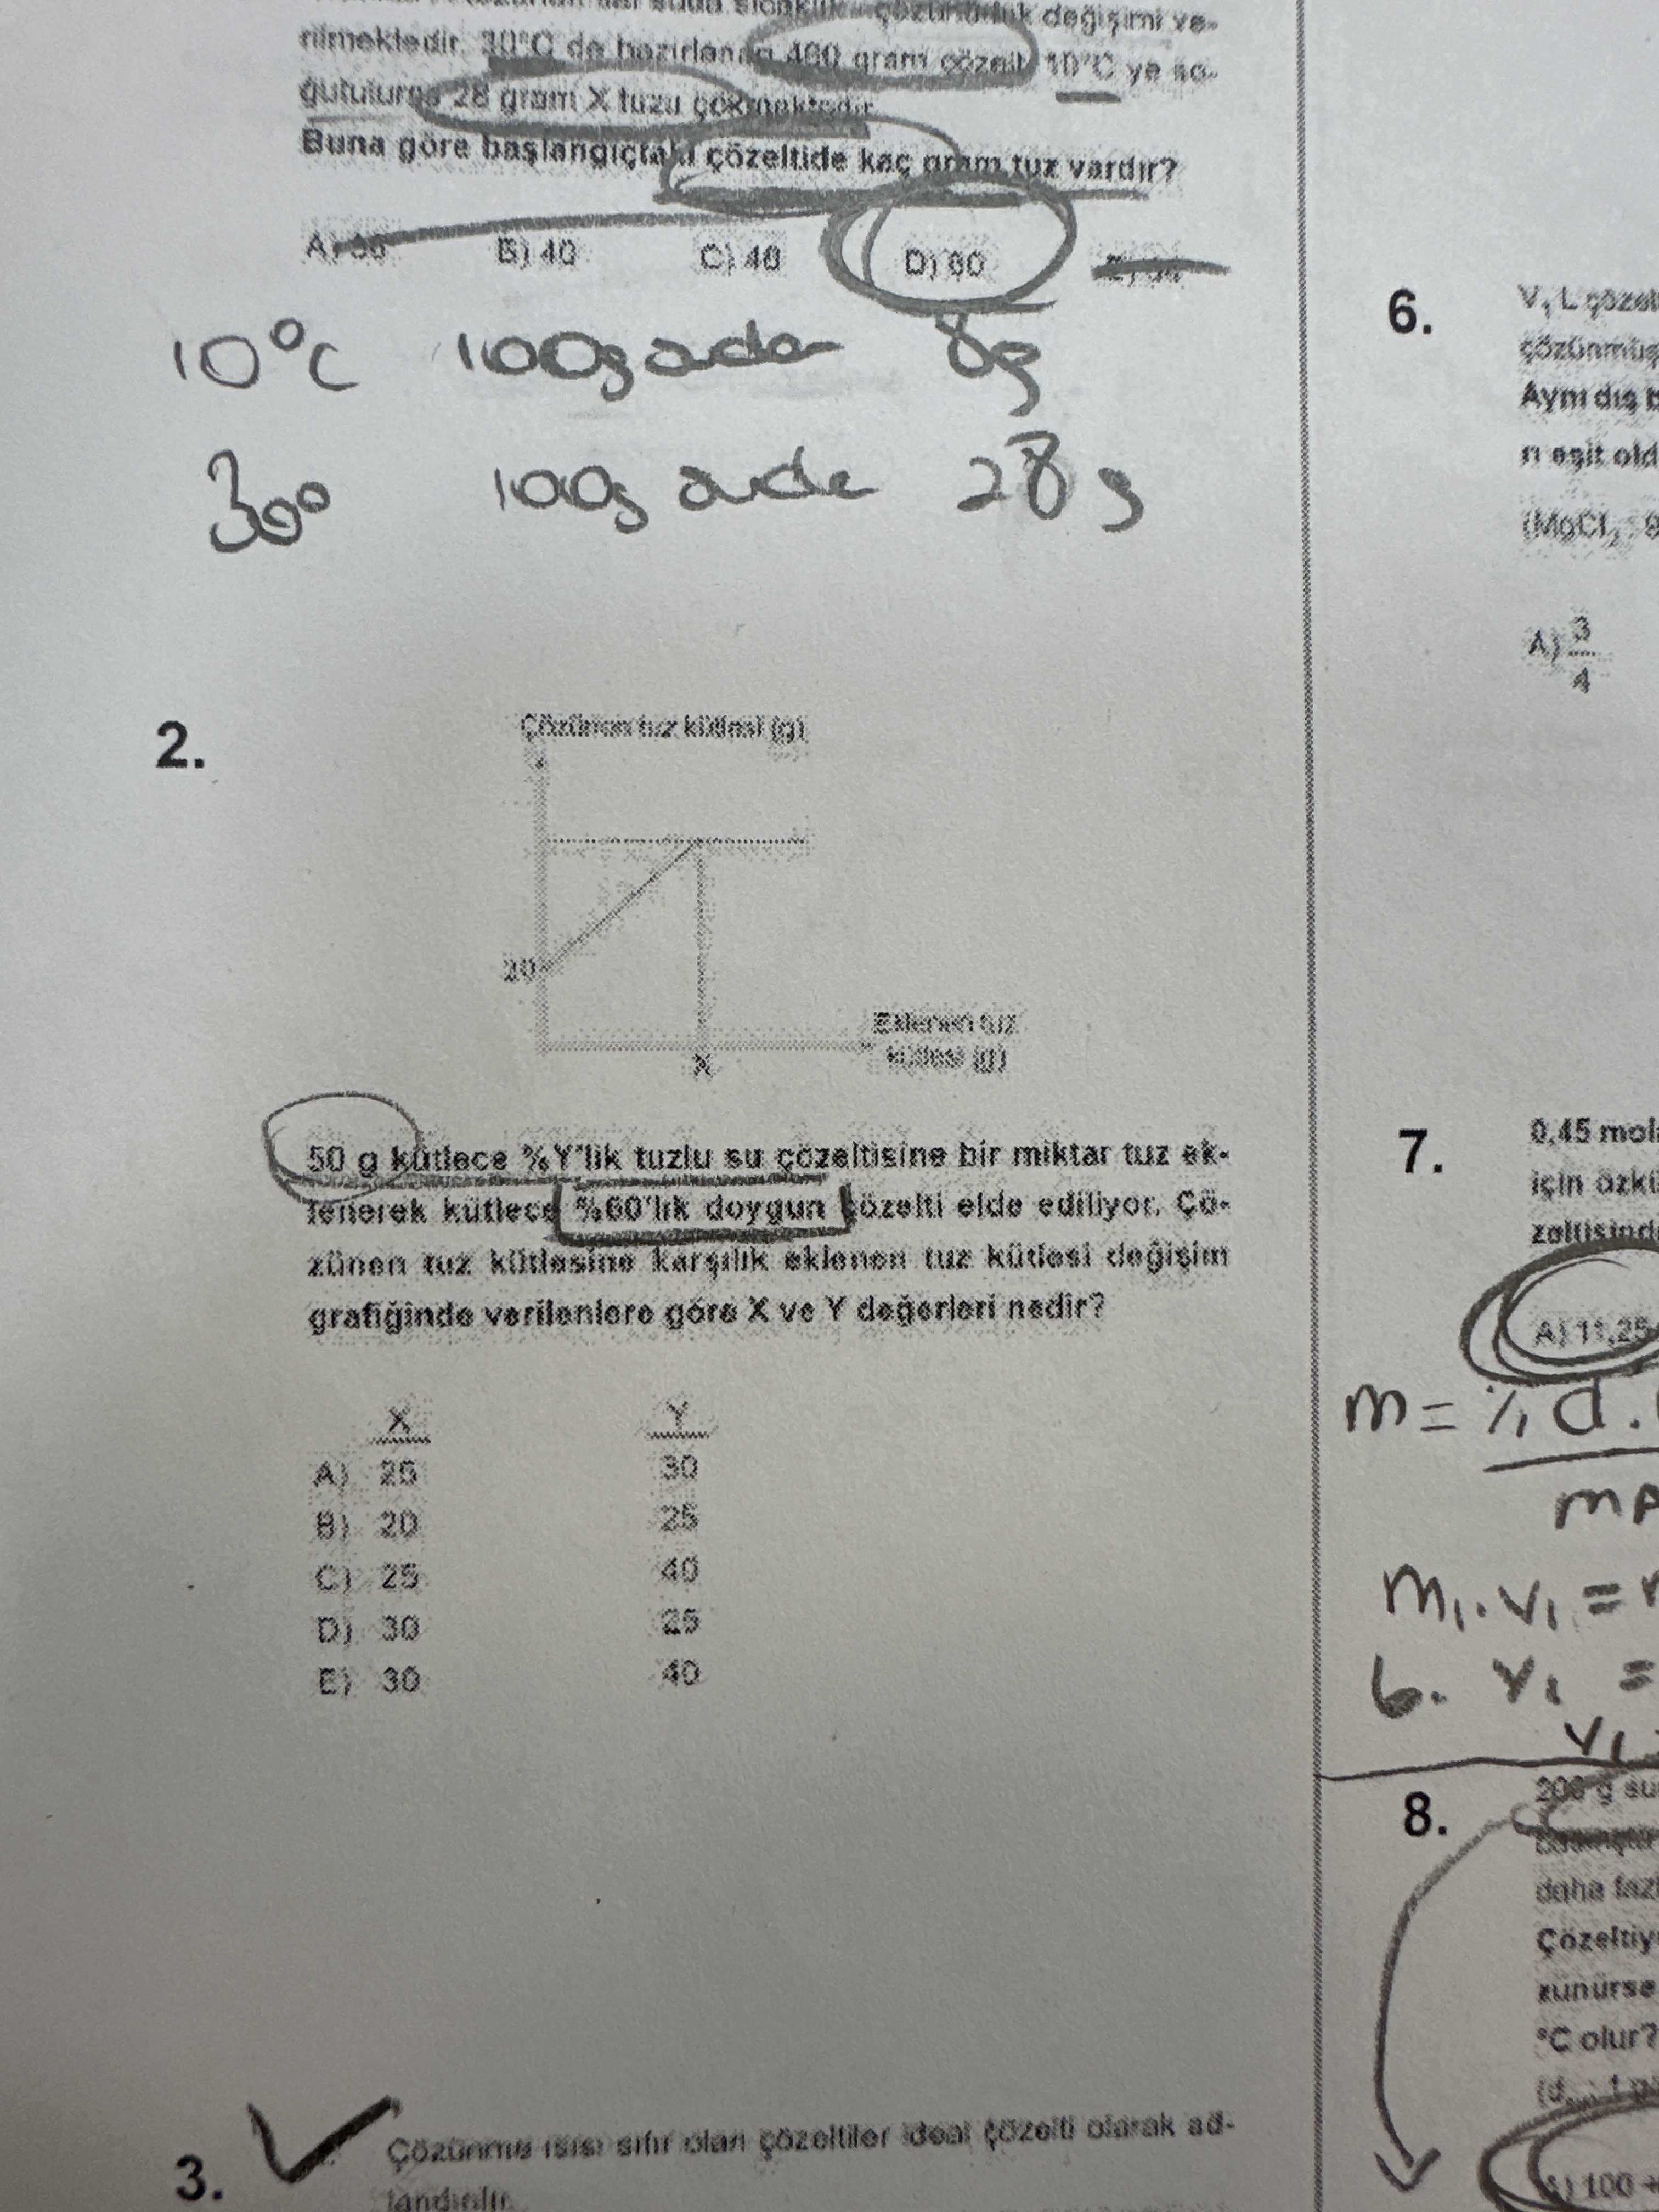 değişimi ve-
rilmektedir. 30°C de hazırlanan 460 gram çözelti 10°C ye so-
ğutulursa 28 gram X tuzu çökmektedir.
Buna göre başlangıçtaki çözeltide kaç gram tuz vardır?
B) 40 C) 48 D) 60
10°C 100g suda 8g
30° 100g suda 28g
2.
Çözünen tuz kütlesi (g)
20
X
Eklenen tuz
kütlesi (g)
50 g kütlece %Y'lik tuzlu su çözeltisine bir miktar tuz ek-
lenerek kütlece %60'lık doygun çözelti elde ediliyor. Çö-
zünen tuz kütlesine karşılık eklenen tuz kütlesi değişim
grafiğinde verilenlere göre X ve Y değerleri nedir?
X Y
A) 25 30
B) 20 25
C) 25 40
D) 30 25
E) 30 40
3.
Çözünme ısısı sıfır olan çözeltiler ideal çözelti olarak ad-
landırılır.
6.
çözünmüş
Aynı dış
rı eşit
(MgCl₂
A) 3/4
7.
0,45
için
A) 11,25
m = % d .
m₁.v₁ =
6. v₁ =
v₁
8.
200 g
daha
°C olur?
A) 100 +